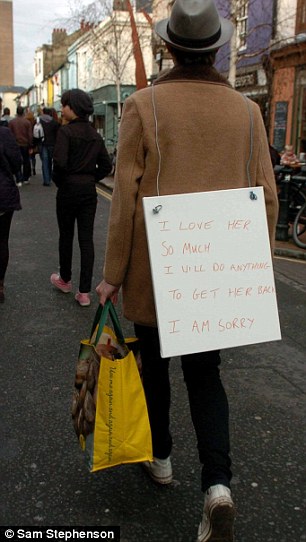 I LOVE HER
SO MUCH
I WILL DO ANYTHING
TO GET HER BACK
I AM SORRY
© Sam Stephenson